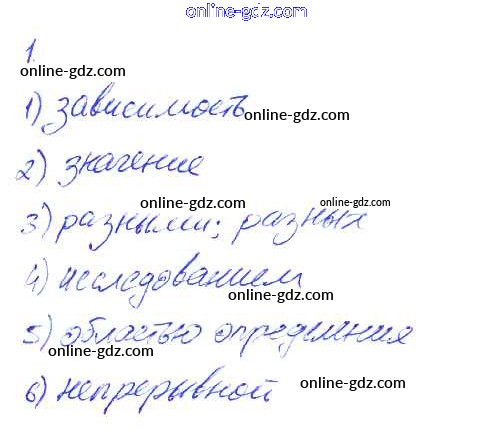 online-gdz.com
1.
online-gdz.com
1) зависимость online-gdz.com
2) значение
online-gdz.com online-gdz.com
3) разными; разных
4) исследованием
online-gdz.com
5) областью определения
online-gdz.com
6) непрерывной online-gdz.com